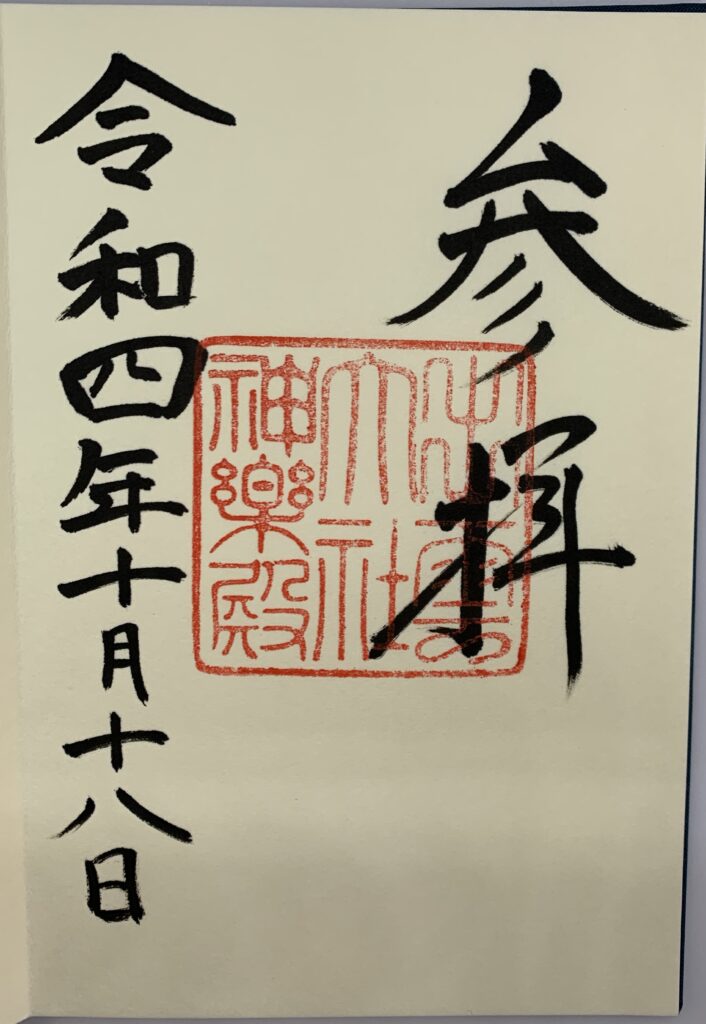 参拝
出雲
大社
神楽殿
令和四年十月十八日